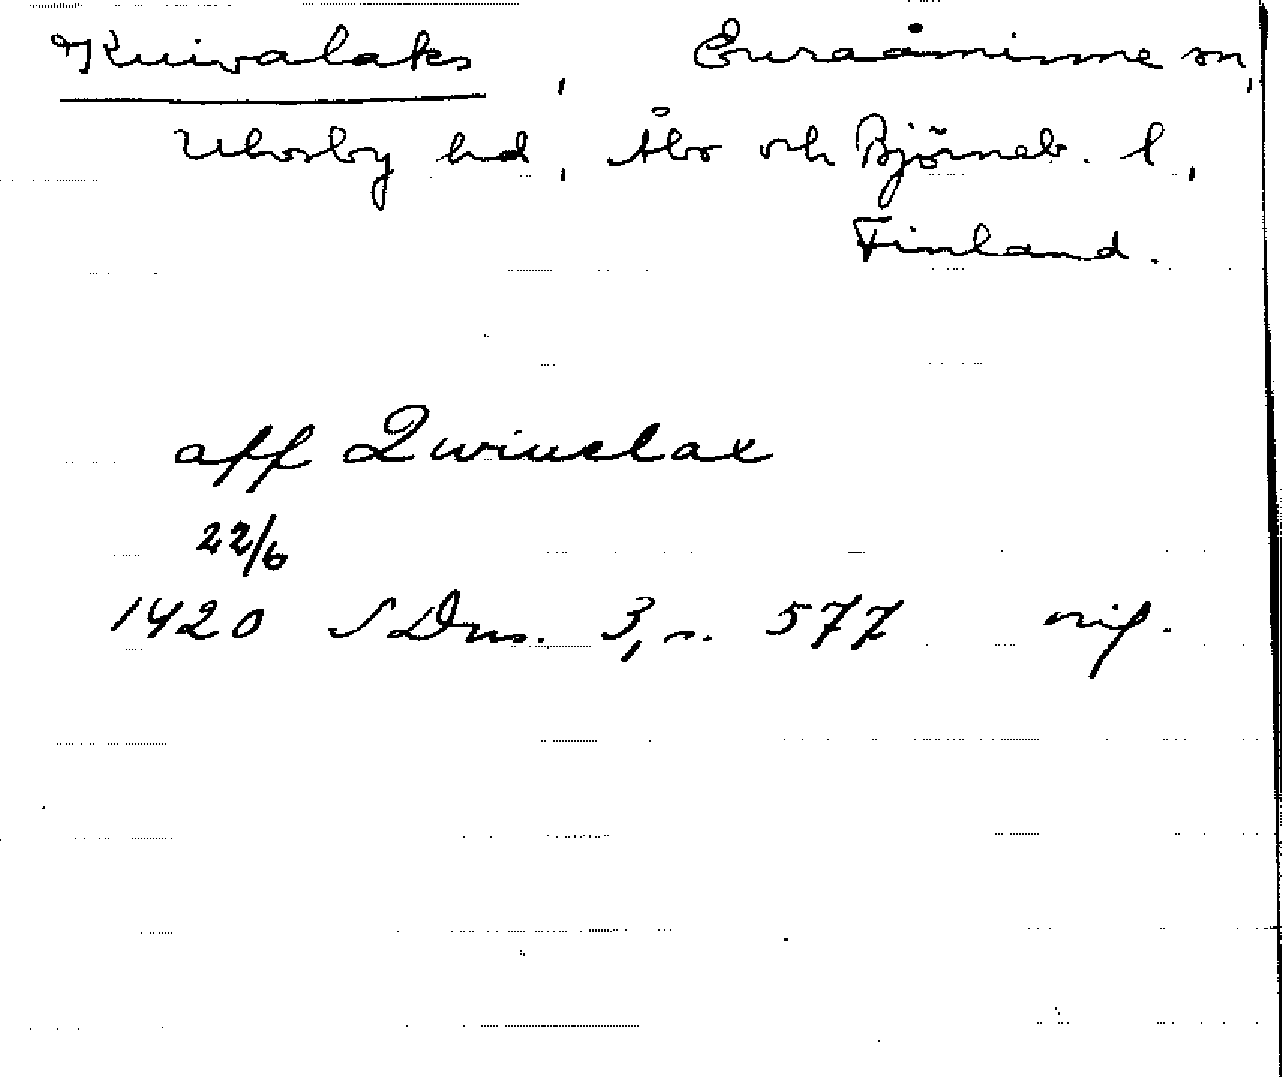 Kuivalaks, Euraåminne sn,
Ulvsby hd, Åbo och Björneb. l,
Finland.
aff Quiuelax
22/6
1420 SDns. 3, s. 577 orig.